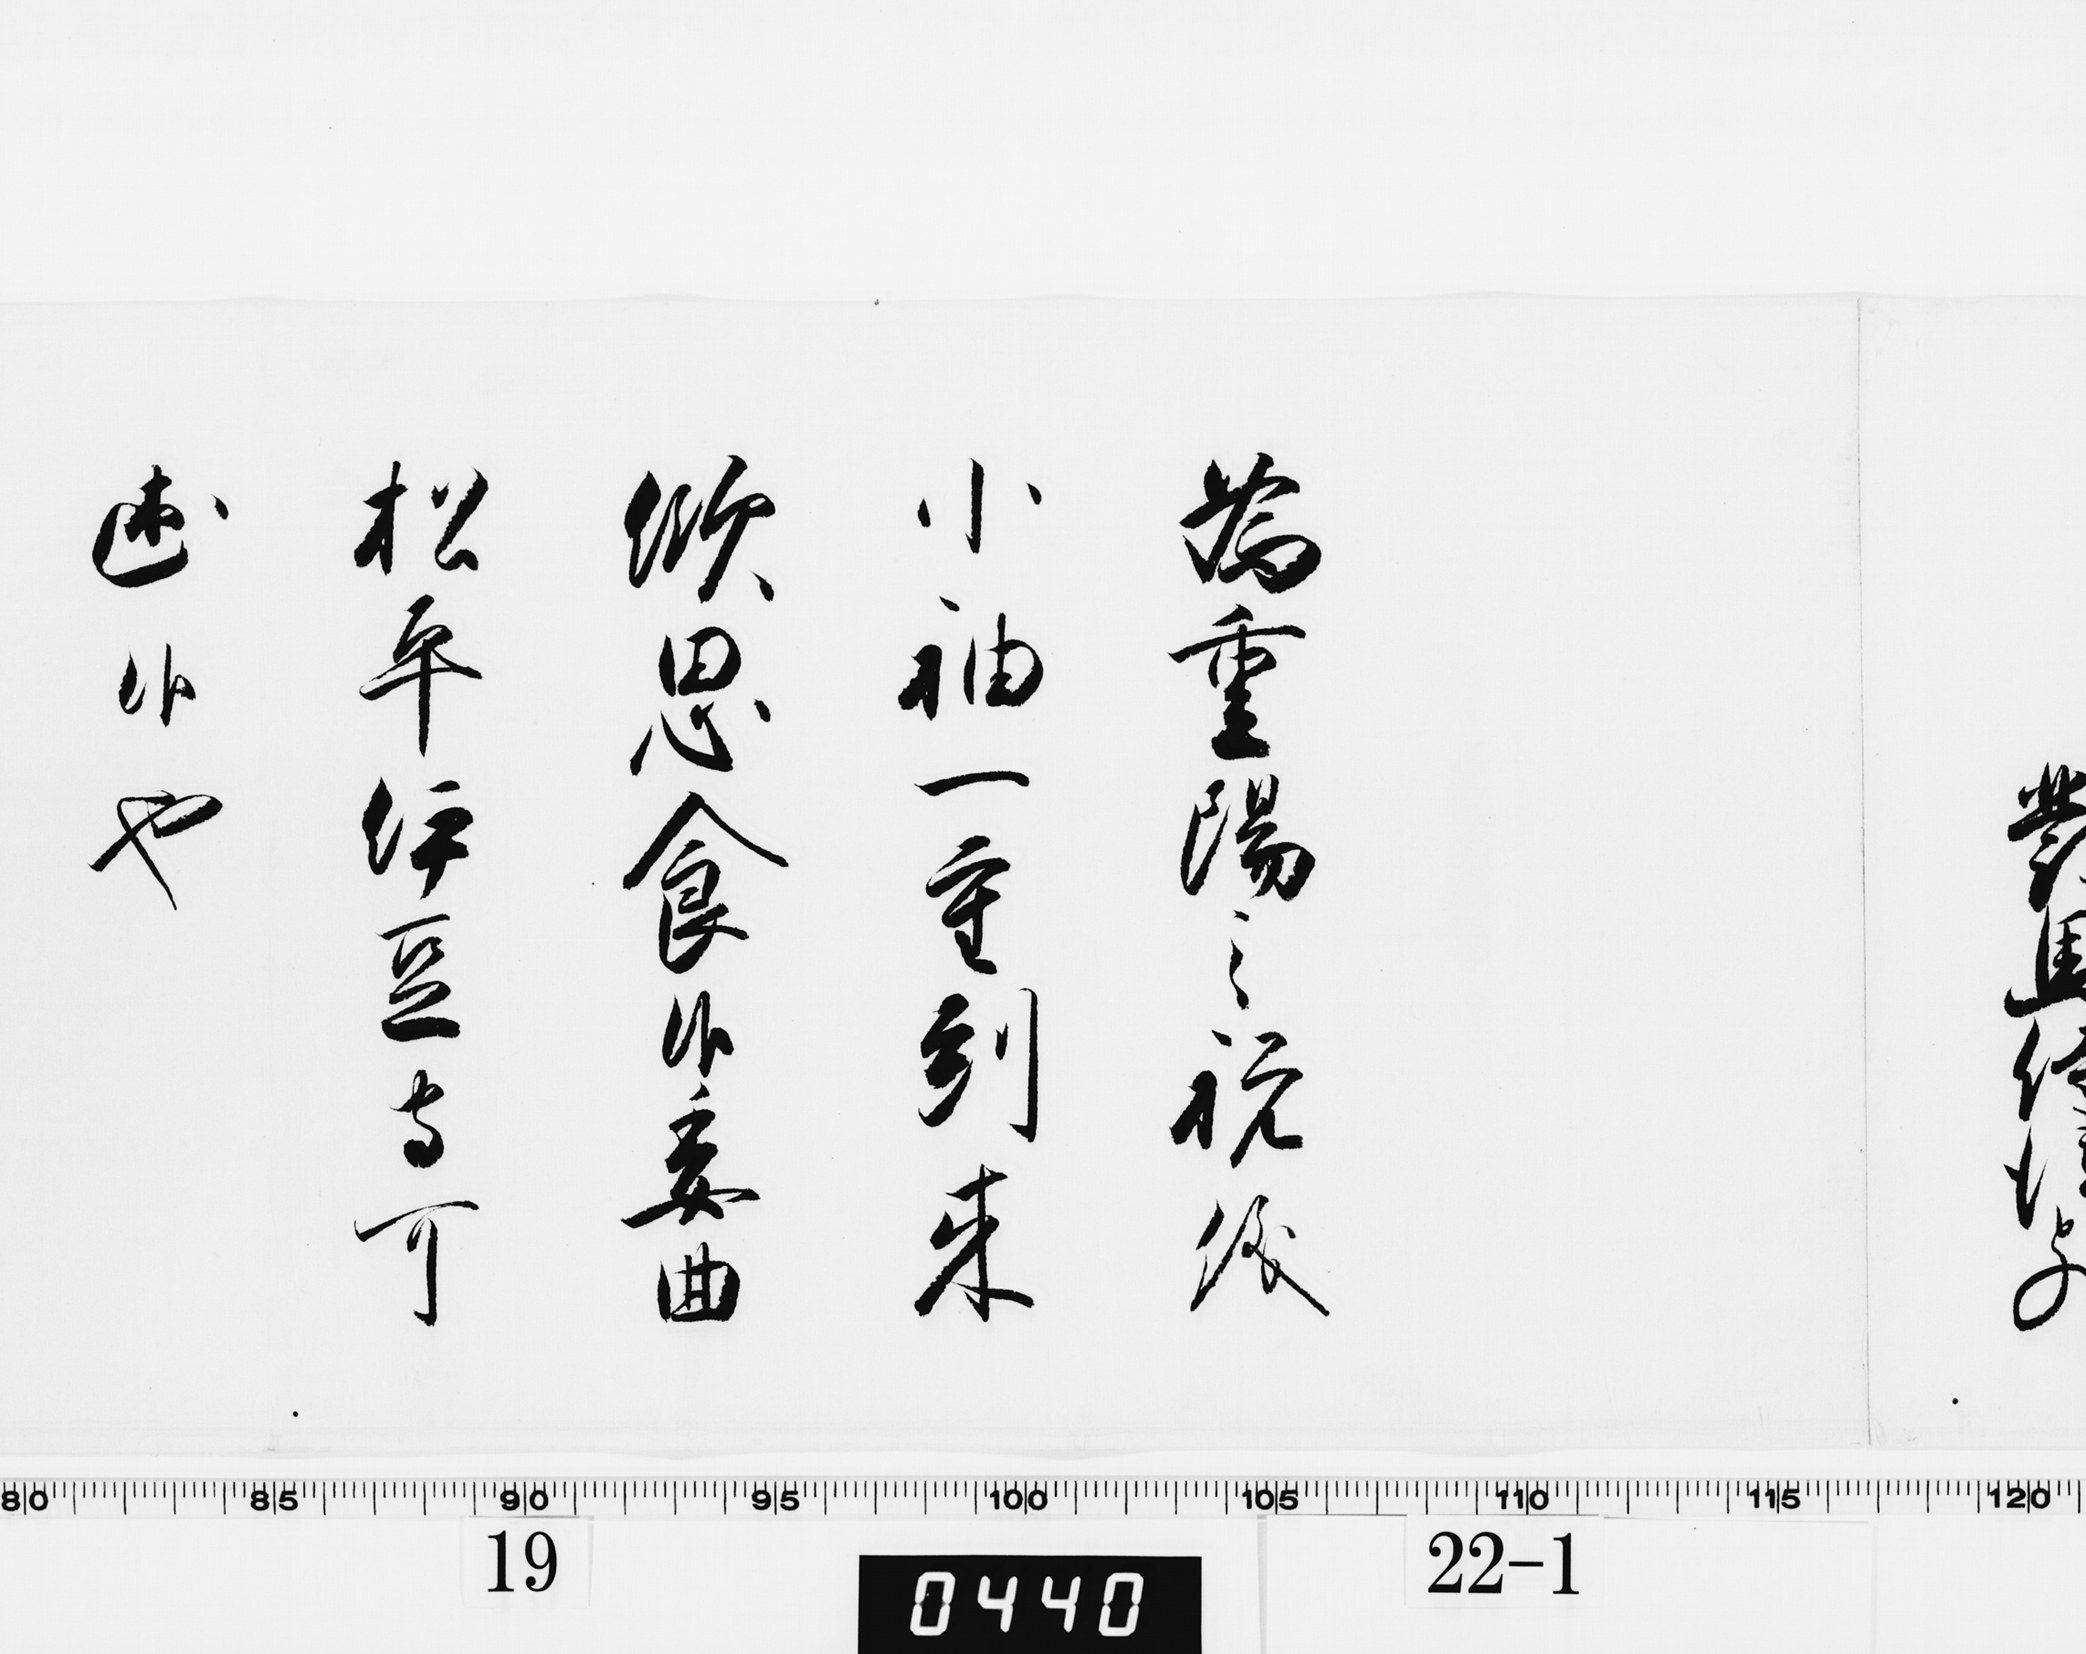 為重陽之祝儀
小袖一重到来
歓思食候委曲
松平伊豆守可
述候也
80 85 90 95 100 105 110 115 120
19 22-1
0440